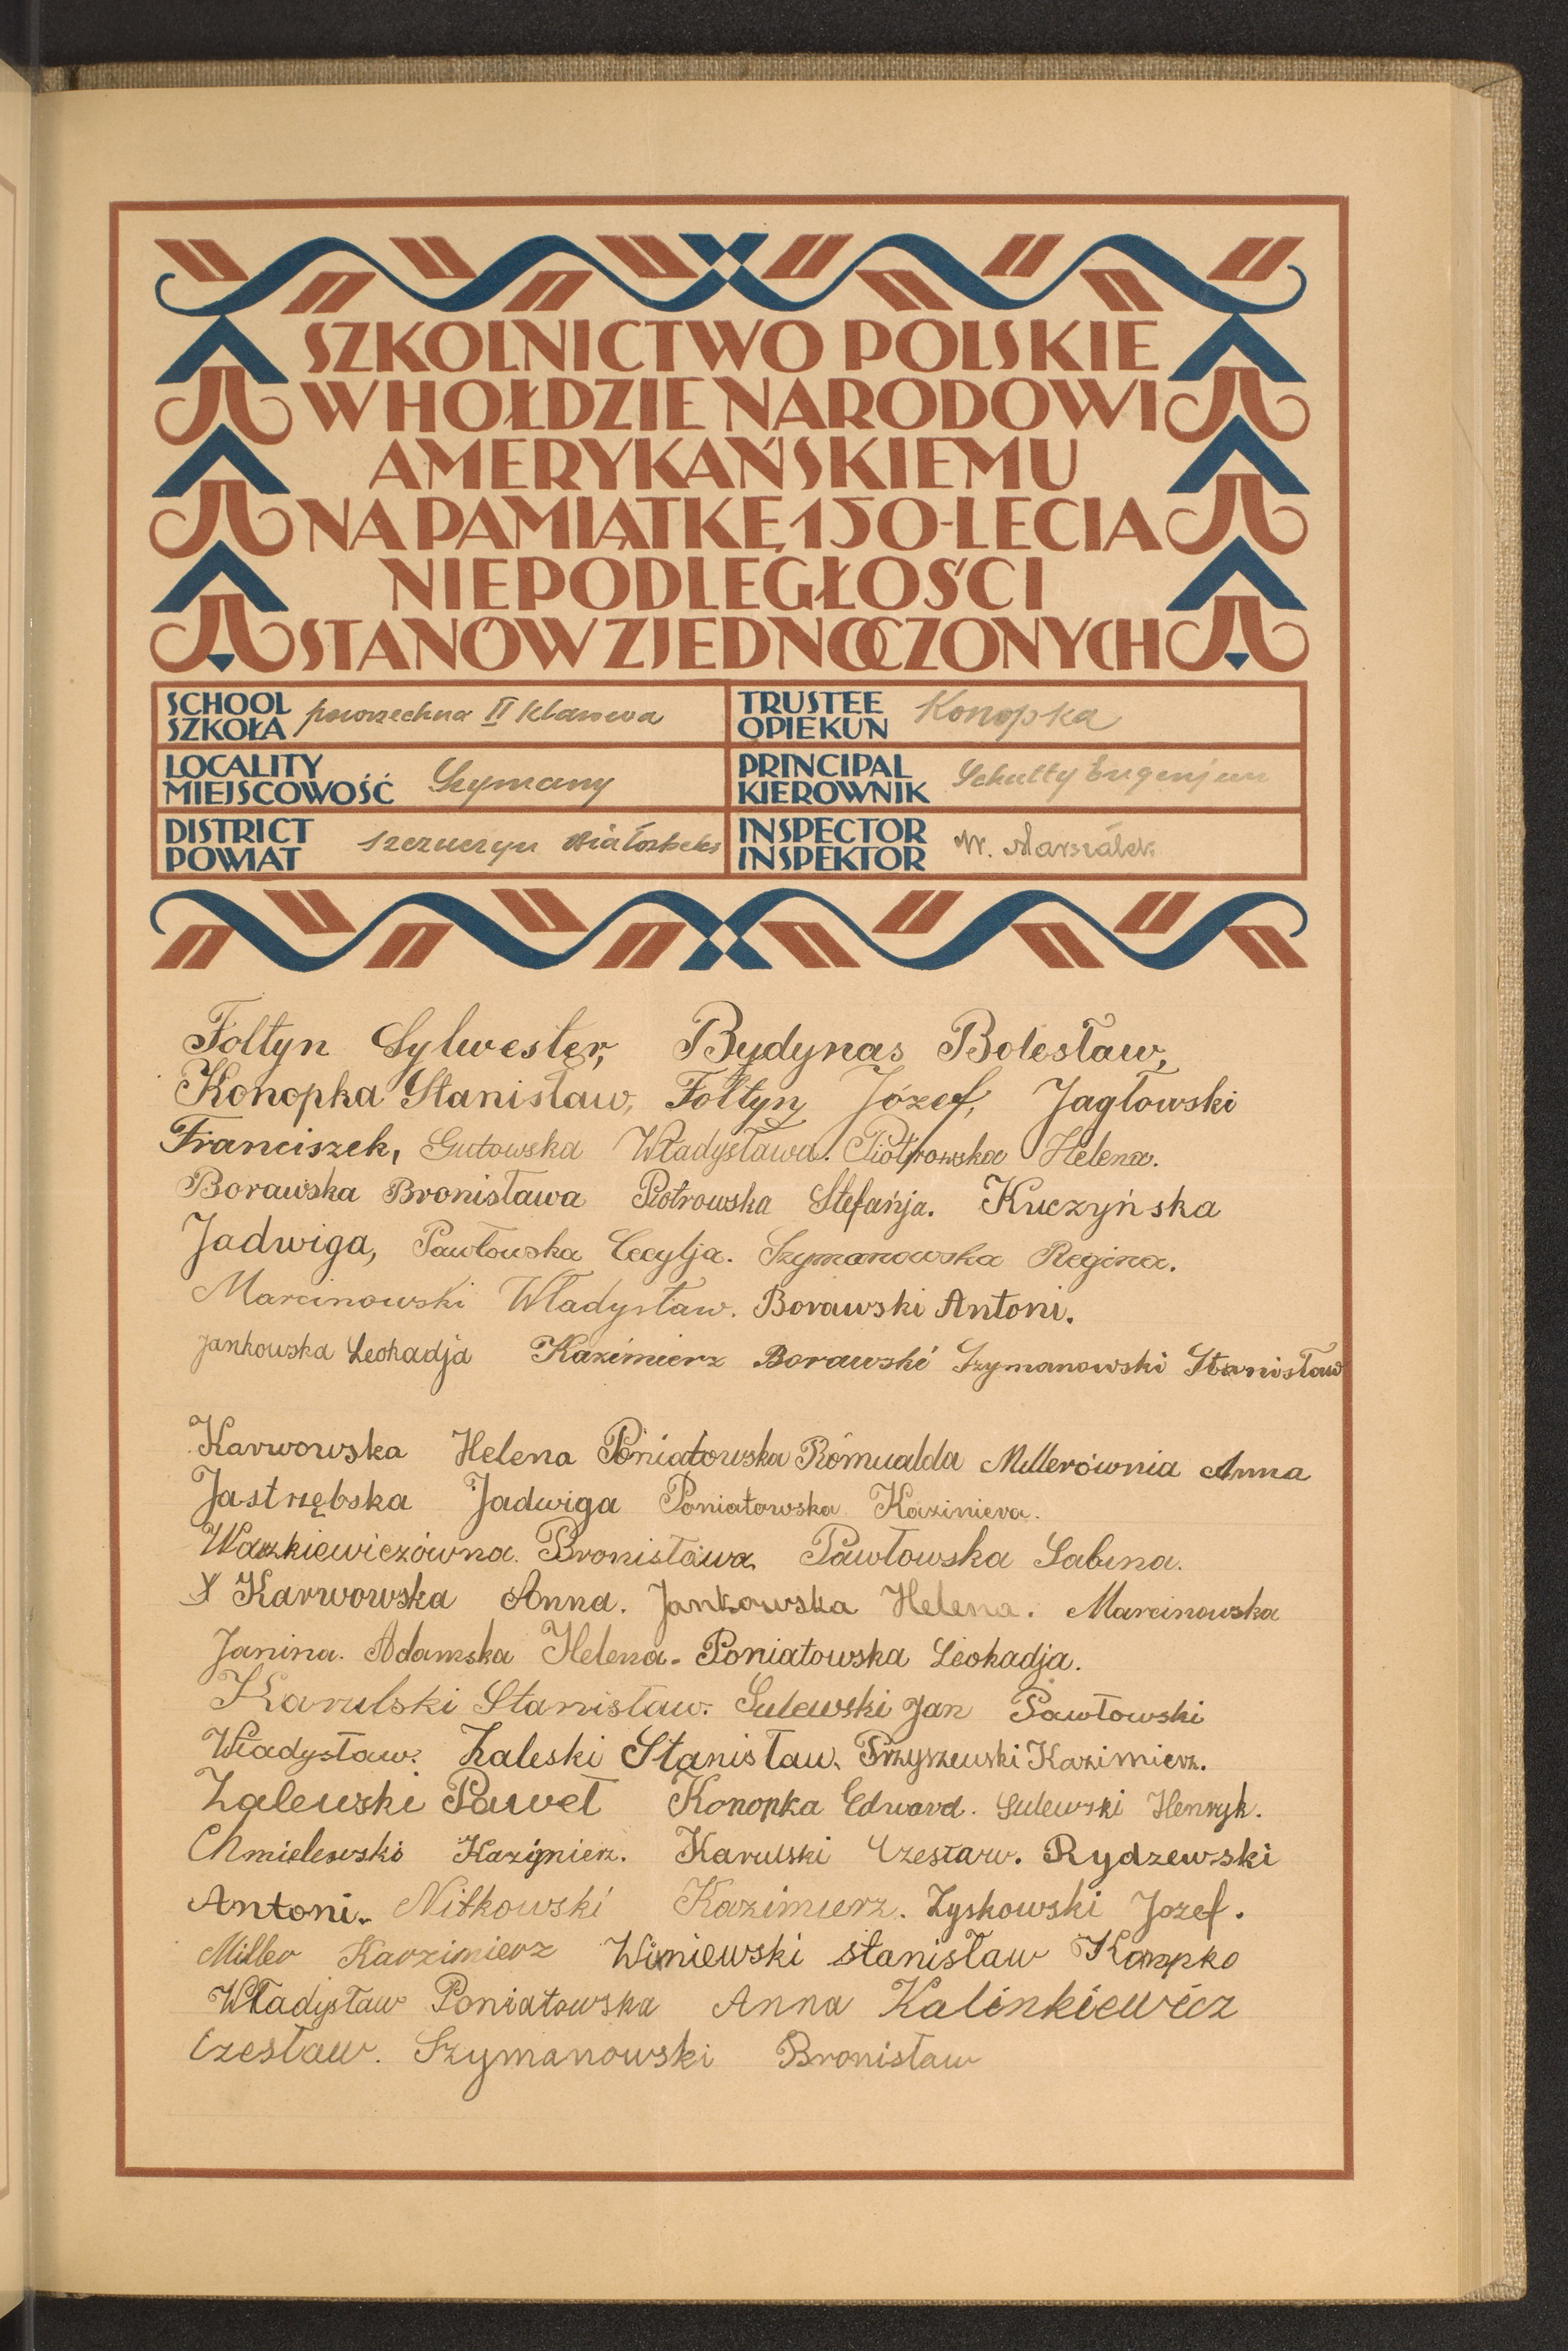 SZKOLNICTWO POLSKIE
W HOŁDZIE NARODOWI
AMERYKAŃSKIEMU
NA PAMIĄTKĘ 150-LECIA
NIEPODLEGŁOŚCI
STANÓW ZJEDNOCZONYCH
SCHOOL SZKOŁA powszechna II klasowa
TRUSTEE OPIEKUN Konopka
LOCALITY MIEJSCOWOŚĆ Szymany
PRINCIPAL KIEROWNIK Schultty Eugenjusz
DISTRICT POWIAT Szczuczyn
INSPECTOR INSPEKTOR W. Marszałek
Foltyn Sylwester, Bydynas Bolesław,
Konopka Stanisław, Foltyn Józef, Jagłowski
Franciszek, Gutowska Władysława. Piotrowska Helena.
Borawska Bronisława Piotrowska Stefańja. Kuczyńska
Jadwiga, Pawłowska Cecylja. Szymanowska Regina.
Marcinowski Władysław. Borawski Antoni.
Jankowska Leokadja Kazimierz Borawski Szymanowski Stanisław
Karwowska Helena Poniatowska Romualda Millerównia Anna
Jastrzębska Jadwiga Poniatowska Kazimiera.
Waszkiewiczówna. Bronisława Pawłowska Sabina.
X Karwowska Anna. Jankowska Helena. Marcinowska
Janina. Adamska Helena. Poniatowska Leokadja.
Karulski Stanisław. Sulewski Jan Pawłowski
Władysław. Zaleski Stanisław. Przyszewski Kazimierz.
Zalewski Paweł Konopka Edward. Sulewski Henryk.
Chmielewski Kazimierz. Karulski Czesław. Rydzewski
Antoni. Nitkowski Kazimierz. Zyskowski Jozef.
Miller Kazimierz Wiśniewski Stanisław Konopko
Władysław Poniatowska Anna Kalinkiewicz
Czesław. Szymanowski Bronisław